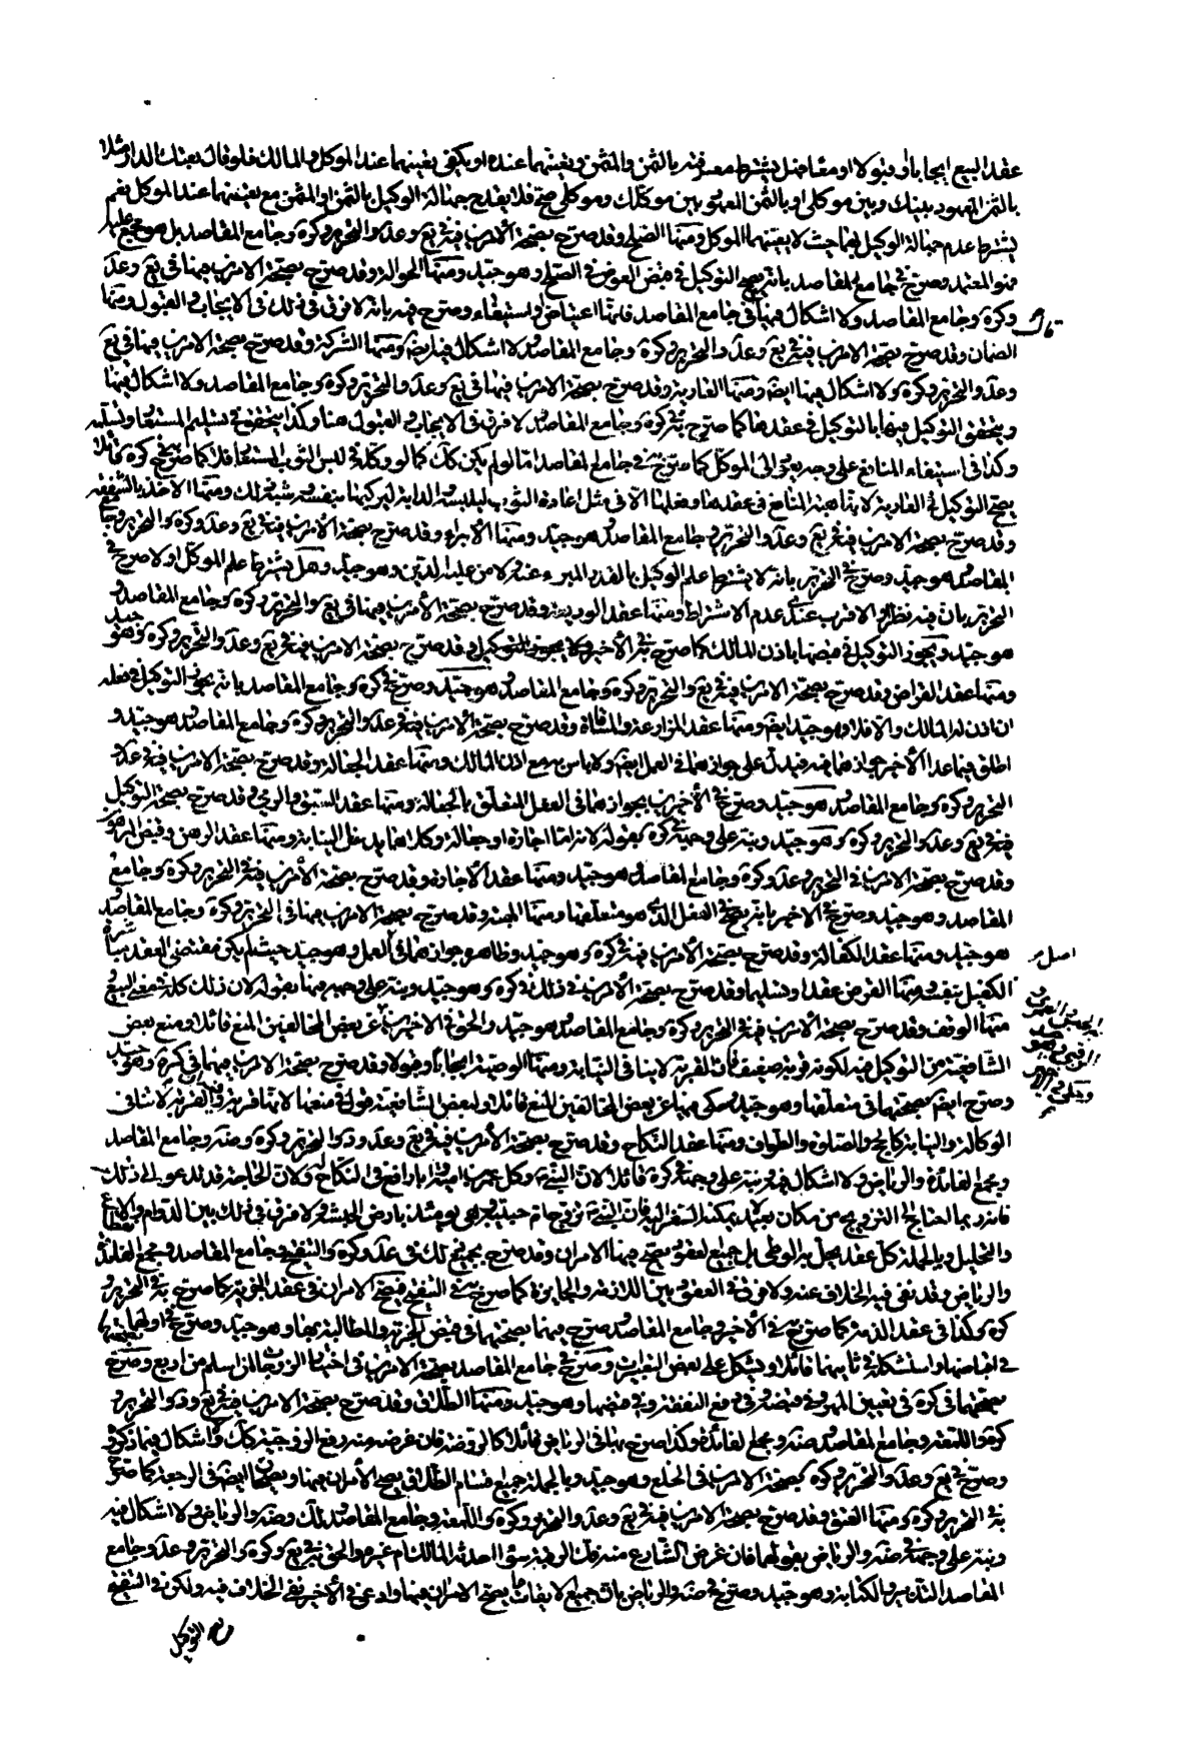 عقد البيع ايجابا و قبولا او مفاضل يشترط معرفته بالثمن والمثمن وتعينهما عنده او يكفى تعينهما عند الموكل والمالك فلو قال بعتك الدار مثلا
بالثمن المعهود بينك وبين موكلى او بالثمن المعهود بين موكلك وموكلى صح فلا يقدح جهالة الوكيل بالثمن او المثمن مع تعينهما عند الموكل نعم
يشترط عدم جهالة الوكيل بهما حيث لا يعينهما الموكل ومنها الصلح وقد صرح بصحة الأمرين فيه فى يع وعد والتحرير وكره وجامع المقاصد بل هو مجمع عليه
فهو المعتمد وصرح فى جامع المقاصد بانه يصح التوكيل فى قبض العوض فى الصلح وهو جيد ومنها الحوالة وقد صرح بصحة الامرين فيها فى يع وعد
وكره وجامع المقاصد ولا اشكال فيها وفى جامع المقاصد فلانها اعتياض او استيفاء وصرح فيه بانه لا فرق فى ذلك فى الايجاب و القبول ومنها
الضمان وقد صرح بصحة الامرين فيه فى يع وعد والتحرير وكره وجامع المقاصد ولا اشكال فيه ايضا ومنها الشركة وقد صرح بصحة الامرين فيها فى يع
وعد والتحرير وكره ولا اشكال فيها ايضا ومنها العارية وقد صرح بصحة الامرين فيها فى يع وعد والتحرير وكره وجامع المقاصد ولا اشكال فيها
ويتحقق التوكيل فيها بالتوكيل فى عقدها كما صرح به فى كره وجامع المقاصد ولا فرق فى الايجاب و القبول هنا وكذا يتحقق فى تسليم المستعار وتسلمه
وكذا فى استيفاء المنافع على وجه يعود الى الموكل كما صرح به فى جامع المقاصد اما لو لم يكن كك كما لو وكله فى لبس الثوب المستعار فلا كما صرح به فى كره قائلا
يصح التوكيل فى العارية لا بتاهبة المنافع فى عقدها وفعلها الا فى مثل اعارة الثوب ليلبسه والدابة ليركبها بنفسه وشبه ذلك ومنها الاخذ بالشفعة
وقد صرح بصحة الامرين فيه فى يع وعد والتحرير و جامع المقاصد وهو جيد ومنها الابراء وقد صرح بصحة الامرين فيه فى يع وعد وكره والتحرير وجامع
المقاصد وهو جيد وصرح فى التحرير بانه لا يشترط علم الوكيل بالقدر المبرء عنه ولا من عليه الدين وهو جيد وهل يشترط علم الموكل او لا صرح فى
التحرير بان فيه نظرا والاقرب عندى عدم الاشتراط ومنها عقد الوديعة وقد صرح بصحة الأمرين فيها فى يع والتحرير وكره وجامع المقاصد و
هو جيد ويجوز التوكيل فى قبضها باذن المالك كما صرح به فى الأخير وقد صرح بصحة الامرين فيه فى يع وعد والتحرير وكره وهو جيد
ومنها عقد القراض وقد صرح بصحة الامرين فيه فى يع والتحرير وكره وجامع المقاصد وهو جيد وصرح فى كره وجامع المقاصد بانه يجوز التوكيل فى فعله
ان اذن له المالك والا فلا وهو جيد ايضا ومنها عقد المزارعة والمساقاة وقد صرح بصحة الأمرين فيه فى عد والتحرير وكره وجامع المقاصد وهو جيد و
اطلق فيما عدا الأخير جوازهما فيه فيدل على جوازهما فى العمل ايضا ولا باس به مع اذن المالك ومنها عقد الجعالة وقد صرح بصحة الامرين فيه فى عد و
التحرير وكره وجامع المقاصد وهو جيد وصرح فى الأخير بجوازهما فى الفعل المتعلق بالجعالة ومنها عقد السبق والرمى وقد صرح بصحة التوكيل
فيه فى يع وعد والتحرير وكره وهو جيد ونبه على وجهه فى كره بقوله لانه اما اجارة او جعالة وكلاهما يدخل النيابة ومنها عقد الرهن وقبض المرهون
وقد صرح بصحة الامرين فى التحرير وعد وكره وجامع المقاصد وهو جيد ومنها عقد الأجارة وقد صرح بصحة الأمرين فيه فى التحرير وكره وجامع
المقاصد وهو جيد وصرح فى الاخير بانه يصح فى الفعل الذى هو متعلقها ومنها الهبة وقد صرح بصحة الامرين فيها فى التحرير وكره وجامع المقاصد
وهو جيد ومنها عقد الكفالة وقد صرح بصحة الأمرين فيه فى كره وهو جيد وظاهره جوازهما فى العمل وهو جيد حيث لم يكن مقتضى العقد مباشرة
الكفيل بنفسه ومنها القرض عقدا وتسليما وقد صرح بصحة الأمرين فى ذلك فى كره وهو جيد ونبه على وجهه فيها بقوله لان ذلك كله فى معنى البيع
منها الوقف وقد صرح بصحة الامرين فيه فى التحرير وكره وجامع المقاصد وهو جيد والحق فى الاخير عن بعض المخالفين المنع قائلا ومنع بعض
الشافعية من التوكيل فيه لكونه قربة ضعيف فان القربة لا ينافى النيابة ومنها الوصية ايجابا وقبولا وقد صرح بصحة الامرين فيهما فى كره وهو جيد
وصرح ايضا بصحتهما فى متعلقها وهو جيد وحكى فيها عن بعض المخالفين المنع قائلا ولبعض الشافعية قول فى منعها لانها قربة والقربة لا تنافى
الوكالة والنيابة كالحج والصلوة والطواف ومنها عقد النكاح وقد صرح بصحة الأمرين فيه فى يع وعد ود والتحرير وكره وضه وجامع المقاصد
ومجمع الفائدة والرياض ولا اشكال فيه ونبه على وجهه فى كره قائلا لان النبى ص وكل عمرو بن امية وابا رافع فى النكاح ولان الحاجة قد تدعو الى ذلك
فانه ربما احتاج الى التزويج من مكان بعيد لا يمكنه السفر اليه فان النبى ص تزوج ام حبيبة وهى يومئذ بارض الحبشة ولا فرق فى ذلك بين الدوام والانقطاع
والتحليل وبالجملة كل عقد يحل به الوطى بل جميع العقود يصح فيها الامران وقد صرح بجميع ذلك فى عد وكره والتنقيح وجامع المقاصد ومجمع الفائدة
والرياض وقد نفى فيه الخلاف عنه ولا فرق فى العقود بين اللازمة والجايزة كما صرح به فى التنقيح فيصح الامران فى عقد الجزية كما صرح به فى التحرير و
كره وكذا فى عقد الذمة كما صرح به فى الأخير وجامع المقاصد وصرح فيهما بصحتهما فى قبض الجزية والمطالبة بها وهو جيد وصرح فى اولهما بصحتهما
فى اقباضها واستشكله فى ثانيهما قائلا ويشكل على بعض التفسيرات وصرح فى جامع المقاصد بصحة الامرين فى اختيار الزوجات لمن اسلم من اربع وصرح
بصحتهما فى كره فى تعيين المهر وفى قبضه وفى دفع النفقة وفى قبضها وهو جيد ومنها الطلاق وقد صرح بصحة الامرين فيه فى يع ود والتحرير و
كره واللمعة وجامع المقاصد وضه ومجمع الفائدة وكذا صرح بها فى الرياض قائلا كالروضة فان غرضه منه رفع الزوجية كك ولا اشكال فيما ذكروه
وصرح فى يع وعد والتحرير وكره بصحة الامرين فى الخلع وهو جيد وبالجملة جميع اقسام الطلاق يصح الأمران فيها ويصحان ايضا فى الرجعة كما صرح
به فى التحرير وكره ومنها العتق وقد صرح بصحة الامرين فيه فى يع وعد والتحرير وكره واللمعة وجامع المقاصد ولك وضه والرياض ولا اشكال فيه
ونبه على وجهه فى ضه والرياض بقولهما فان غرض الشارع منه فك الرقبة سواء احدثه المالك ام غيره والحق به فى يع وكره والتحرير وعد وجامع
المقاصد التدبير والكتابة وهو جيد وصرح فى ضه والرياض بان جميع الايقاعات يصح الامران فيها وادعى فى الأخير نفى الخلاف فيه ولكن فى التنقيح
التوكيل